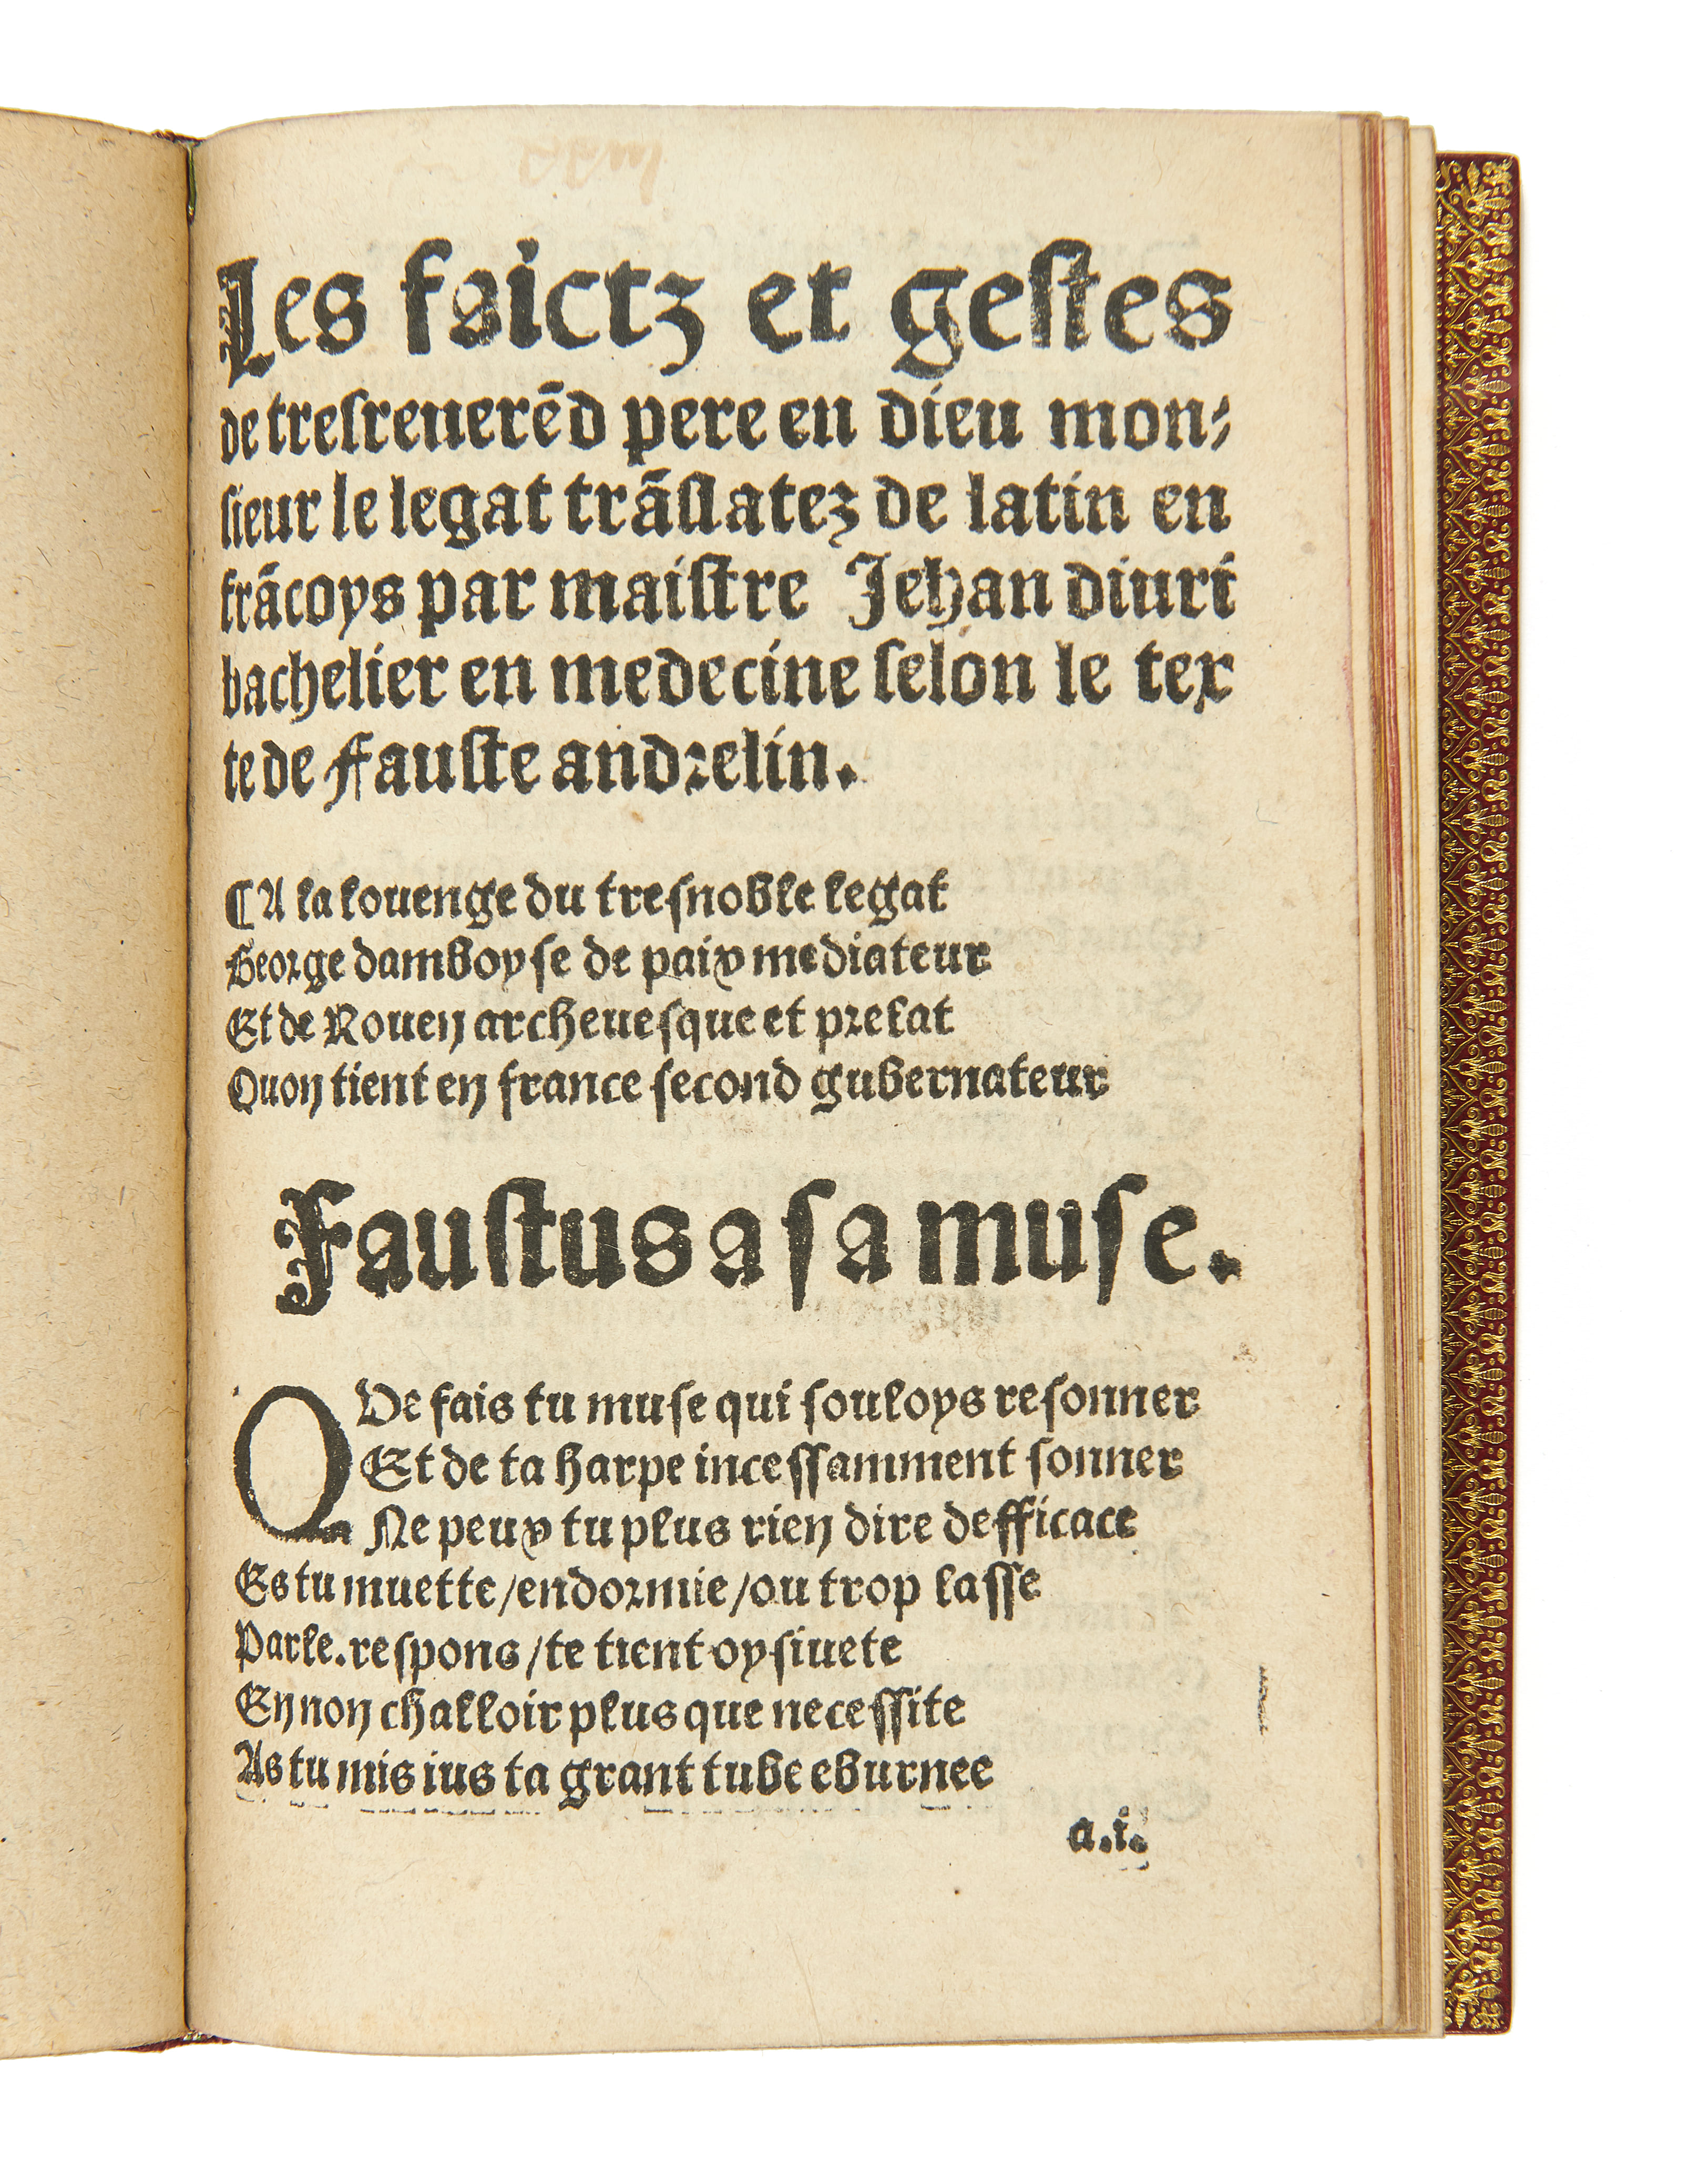 Les faictz et gestes
de tresreuerēd pere en dieu mon⸗
sieur le legat trāslatez de latin en
frācoys par maistre Jehan diuri
bachelier en medecine selon le tex
te de Fauste andrelin.
¶A la louenge du tresnoble legat
George damboyse de paix mediateur
Et de Rouen archeuesque et prelat
Quon tient en france second gubernateur
Faustus a sa muse.
QVe fais tu muse qui souloys resonner
Et de ta harpe incessamment sonner
Ne peux tu plus rien dire defficace
Es tu muette/endormie/ou trop lasse
Parle.respons/te tient oysiuete
En non challoir plus que necessite
As tu mis ius ta grant tube eburnee
a.i.